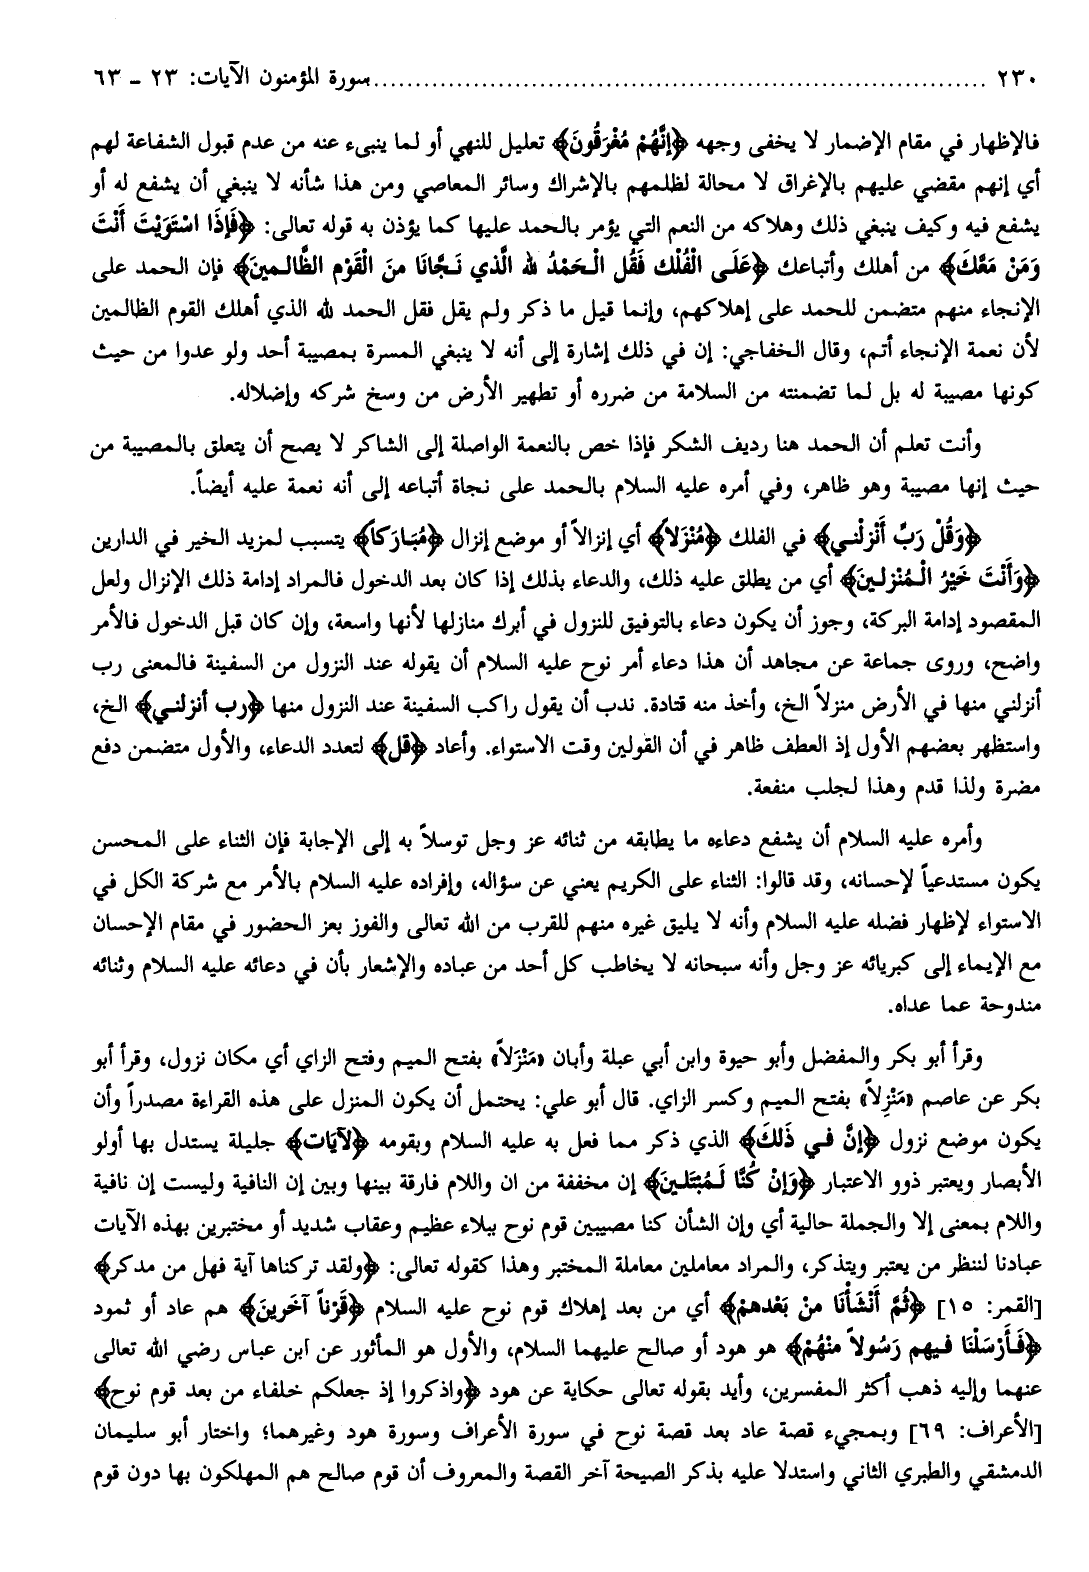 ٢٣٠ ........................................................................ سورة المؤمنون الآيات: ٢٣ ـ ٦٣
فالإظهار في مقام الإضمار لا يخفى وجهه ﴿إنَّهُمْ مُغْرَقُونَ﴾ تعليل للنهي أو لما ينبىء عنه من عدم قبول الشفاعة لهم
أي إنهم مقضي عليهم بالإغراق لا محالة لظلمهم بالإشراك وسائر المعاصي ومن هذا شأنه لا ينبغي أن يشفع له أو
يشفع فيه وكيف ينبغي ذلك وهلاكه من النعم التي يؤمر بالحمد عليها كما يؤذن به قوله تعالى: ﴿فَإِذَا اسْتَوَيْتَ أَنْتَ
وَمَنْ مَعَكَ﴾ من أهلك وأتباعك ﴿عَلَى الْفُلْك فَقُل الْحَمْدُ لله الَّذي نَجَّانَا منَ الْقَوْم الظَّالـمينَ﴾ فإن الحمد على
الإنجاء منهم متضمن للحمد على إهلاكهم، وإنما قيل ما ذكر ولم يقل فقل الحمد لله الذي أهلك القوم الظالمين
لأن نعمة الإنجاء أتم، وقال الخفاجي: إن في ذلك إشارة إلى أنه لا ينبغي المسرة بمصيبة أحد ولو عدوا من حيث
كونها مصيبة له بل لما تضمنته من السلامة من ضرره أو تطهير الأرض من وسخ شركه وإضلاله.
وأنت تعلم أن الحمد هنا رديف الشكر فإذا خص بالنعمة الواصلة إلى الشاكر لا يصح أن يتعلق بالمصيبة من
حيث إنها مصيبة وهو ظاهر، وفي أمره عليه السلام بالحمد على نجاة أتباعه إلى أنه نعمة عليه أيضاً.
﴿وَقُلْ رَبِّ أَنْزلْنـي﴾ في الفلك ﴿مُنْزَلاً﴾ أي إنزالاً أو موضع إنزال ﴿مُبَـارَكاً﴾ يتسبب لمزيد الخير في الدارين
﴿وَأَنْتَ خَيْرُ الْـمُنْزلـينَ﴾ أي من يطلق عليه ذلك، والدعاء بذلك إذا كان بعد الدخول فالمراد إدامة ذلك الإنزال ولعل
المقصود إدامة البركة، وجوز أن يكون دعاء بالتوفيق للنزول في أبرك منازلها لأنها واسعة، وإن كان قبل الدخول فالأمر
واضح، وروى جماعة عن مجاهد أن هذا دعاء أمر نوح عليه السلام أن يقوله عند النزول من السفينة فالمعنى رب
أنزلني منها في الأرض منزلاً الخ، وأخذ منه قتادة. ندب أن يقول راكب السفينة عند النزول منها ﴿رب أنزلنـي﴾ الخ،
واستظهر بعضهم الأول إذ العطف ظاهر في أن القولين وقت الاستواء. وأعاد ﴿قل﴾ لتعدد الدعاء، والأول متضمن دفع
مضرة ولذا قدم وهذا لجلب منفعة.
وأمره عليه السلام أن يشفع دعاءه ما يطابقه من ثنائه عز وجل توسلاً به إلى الإجابة فإن الثناء على المحسن
يكون مستدعياً لإحسانه، وقد قالوا: الثناء على الكريم يعني عن سؤاله، وإفراده عليه السلام بالأمر مع شركة الكل في
الاستواء لإظهار فضله عليه السلام وأنه لا يليق غيره منهم للقرب من الله تعالى والفوز بعز الحضور في مقام الإحسان
مع الإيماء إلى كبريائه عز وجل وأنه سبحانه لا يخاطب كل أحد من عباده والإشعار بأن في دعائه عليه السلام وثنائه
مندوحة عما عداه.
وقرأ أبو بكر والمفضل وأبو حيوة وابن أبي عبلة وأبان «مَنْزَلاً» بفتح الميم وفتح الزاي أي مكان نزول، وقرأ أبو
بكر عن عاصم «مَنْزِلاً» بفتح الميم وكسر الزاي. قال أبو علي: يحتمل أن يكون المنزل على هذه القراءة مصدراً وأن
يكون موضع نزول ﴿إنَّ فـي ذَلكَ﴾ الذي ذكر مما فعل به عليه السلام وبقومه ﴿لآيَات﴾ جليلة يستدل بها أولو
الأبصار ويعتبر ذوو الاعتبار ﴿وَإنْ كُنَّا لَـمُبْتَلـينَ﴾ إن مخففة من ان واللام فارقة بينها وبين إن النافية وليست إن نافية
واللام بمعنى إلا والجملة حالية أي وإن الشأن كنا مصيبين قوم نوح ببلاء عظيم وعقاب شديد أو مختبرين بهذه الآيات
عبادنا لننظر من يعتبر ويتذكر، والمراد معاملين معاملة المختبر وهذا كقوله تعالى: ﴿ولقد تركناها آية فهل من مدكر﴾
[القمر: ١٥] ﴿ثُمَّ أَنْشَأْنَا منْ بَعْدهمْ﴾ أي من بعد إهلاك قوم نوح عليه السلام ﴿قَرْناً آخَرينَ﴾ هم عاد أو ثمود
﴿فَـأَرْسَلْنَا فـيهم رَسُولاً منْهُمْ﴾ هو هود أو صالح عليهما السلام، والأول هو المأثور عن ابن عباس رضي الله تعالى
عنهما وإليه ذهب أكثر المفسرين، وأيد بقوله تعالى حكاية عن هود ﴿واذكروا إذ جعلكم خلفاء من بعد قوم نوح﴾
[الأعراف: ٦٩] وبمجيء قصة عاد بعد قصة نوح في سورة الأعراف وسورة هود وغيرهما؛ واختار أبو سليمان
الدمشقي والطبري الثاني واستدلا عليه بذكر الصيحة آخر القصة والمعروف أن قوم صالح هم المهلكون بها دون قوم